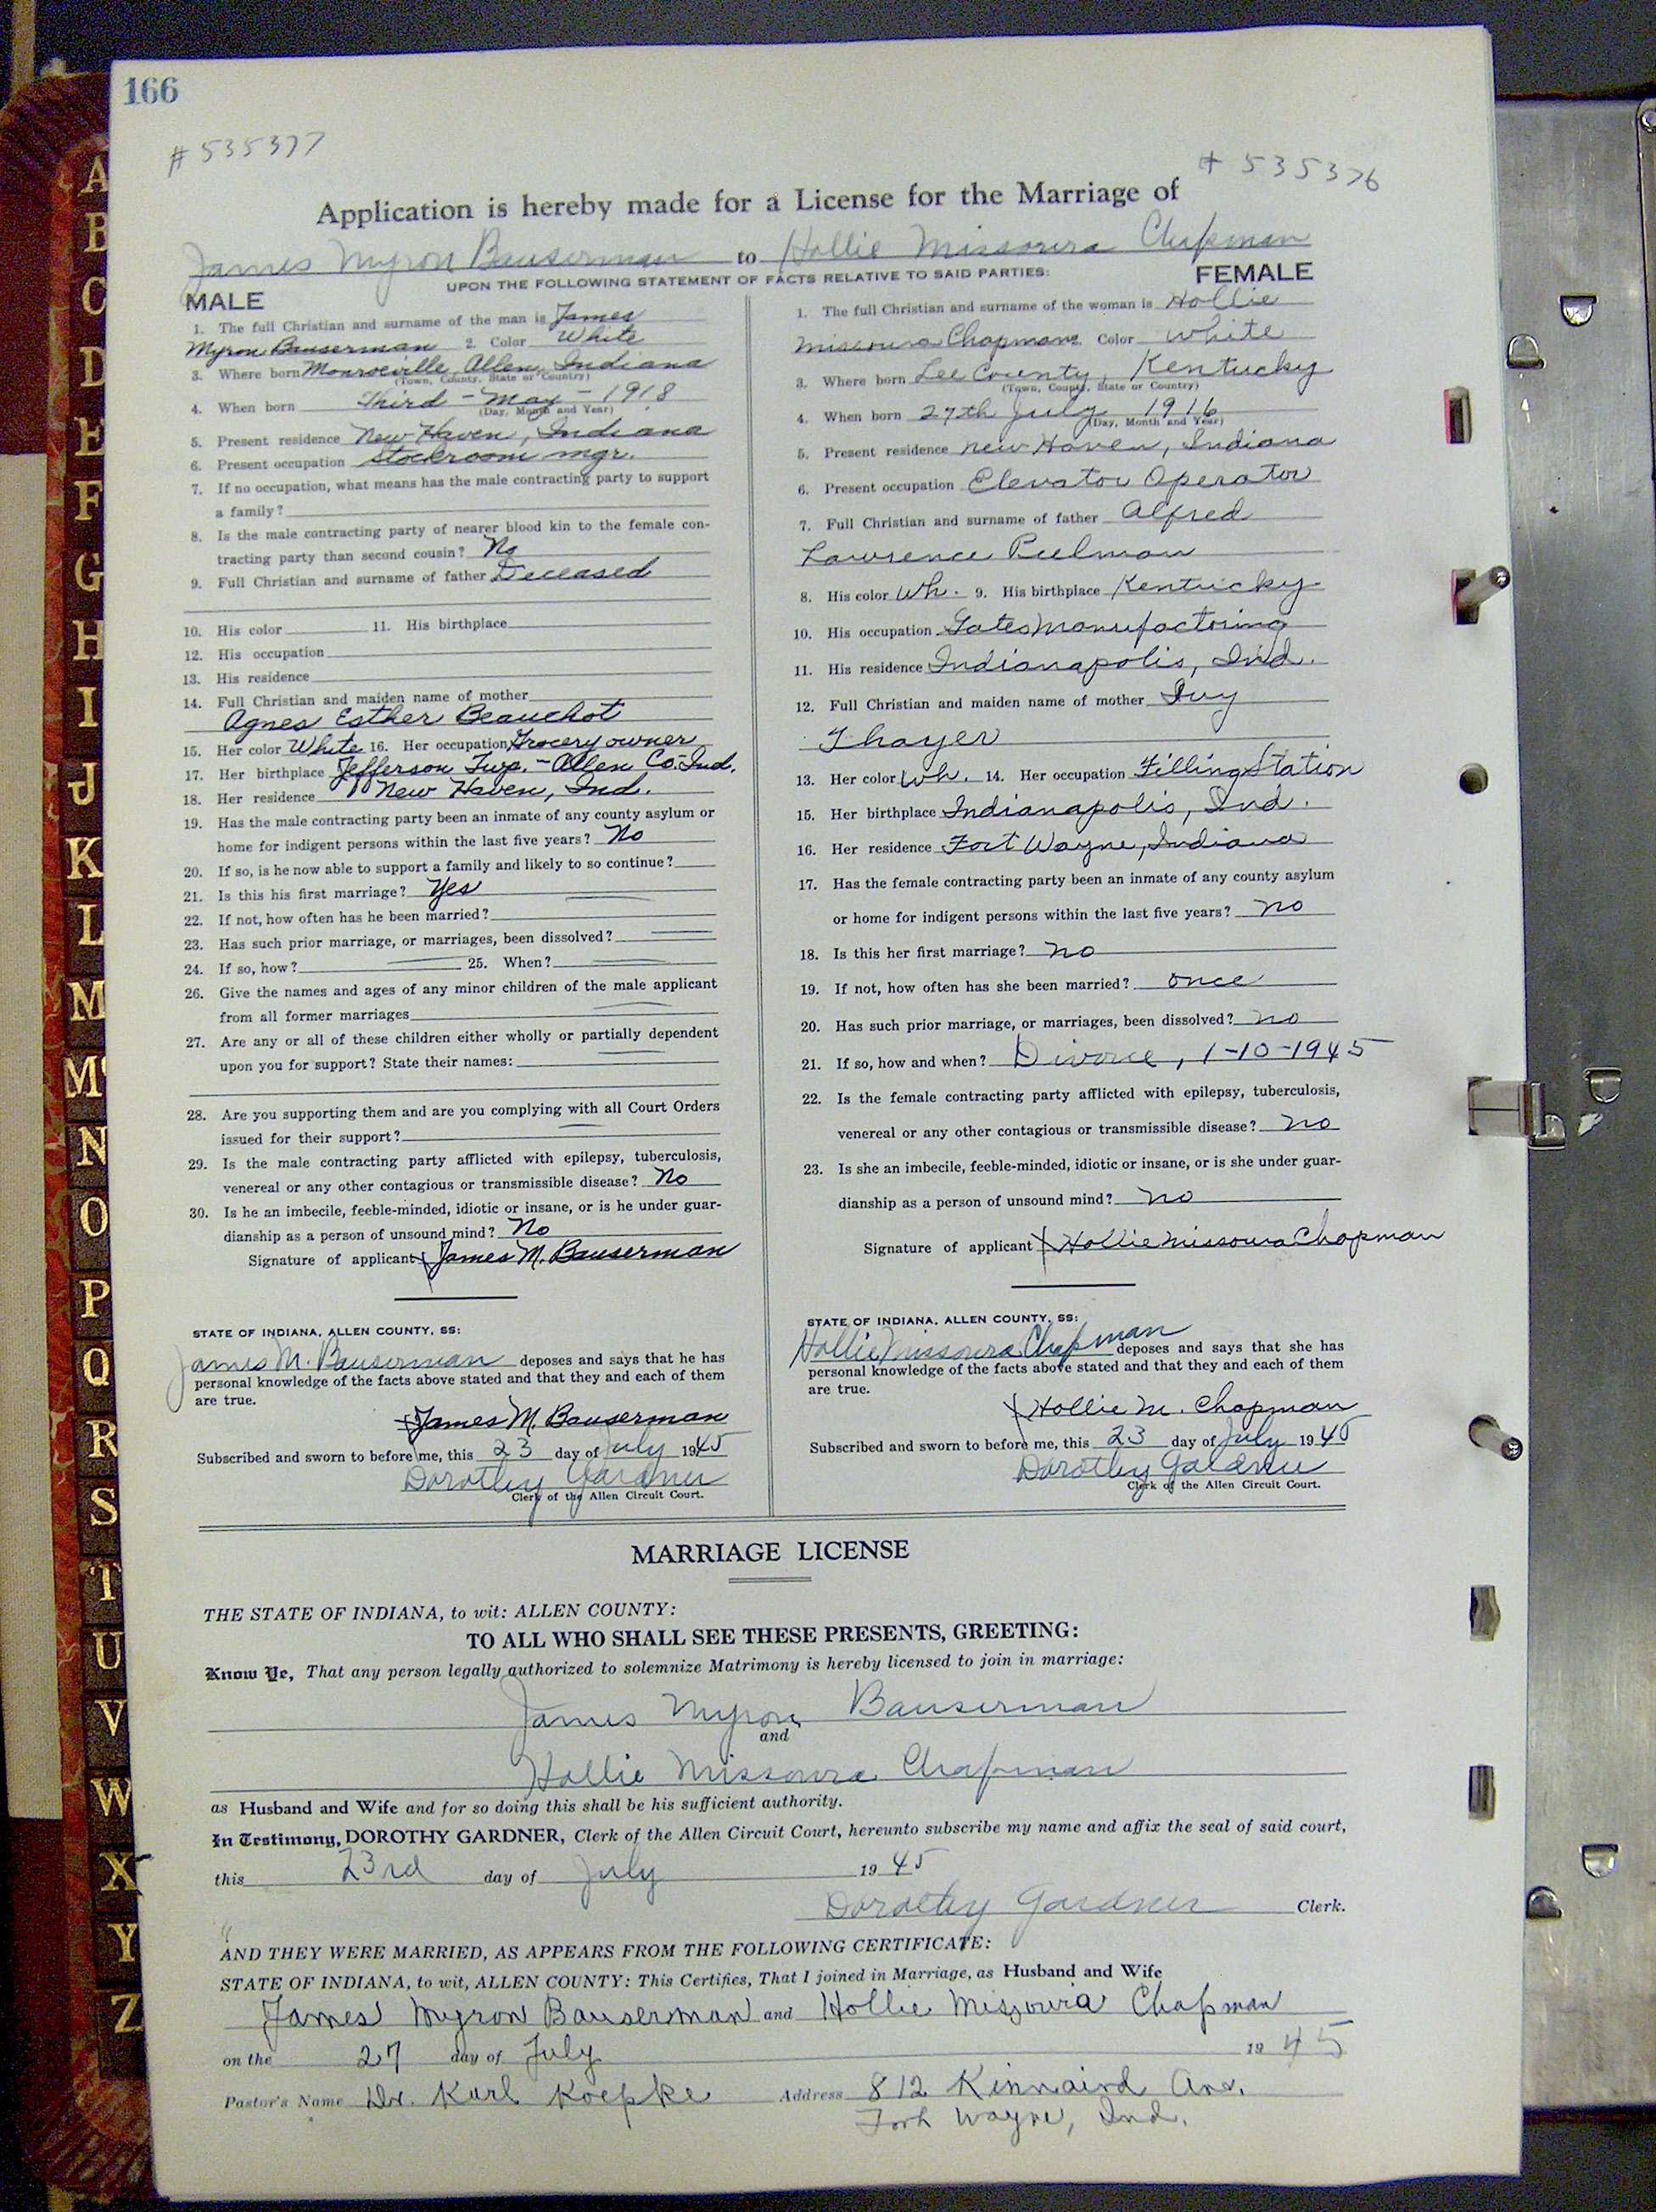 166
# 535377
# 535376
Application is hereby made for a License for the Marriage of
James Myron Bauserman to Hollie Missoura Chapman
UPON THE FOLLOWING STATEMENT OF FACTS RELATIVE TO SAID PARTIES:
MALE
1. The full Christian and surname of the man is James
Myron Bauserman 2. Color White
3. Where born Monroeville, Allen, Indiana
(Town, County, State or Country)
4. When born Third - May - 1918
(Day, Month and Year)
5. Present residence New Haven, Indiana
6. Present occupation Stockroom mgr.
7. If no occupation, what means has the male contracting party to support
a family?
8. Is the male contracting party of nearer blood kin to the female con-
tracting party than second cousin? No
9. Full Christian and surname of father Deceased
10. His color 11. His birthplace
12. His occupation
13. His residence
14. Full Christian and maiden name of mother
Agnes Esther Beauchot
15. Her color White 16. Her occupation Grocery owner
17. Her birthplace Jefferson Twp. - Allen Co. Ind.
18. Her residence New Haven, Ind.
19. Has the male contracting party been an inmate of any county asylum or
home for indigent persons within the last five years? No
20. If so, is he now able to support a family and likely to so continue?
21. Is this his first marriage? Yes
22. If not, how often has he been married?
23. Has such prior marriage, or marriages, been dissolved?
24. If so, how? 25. When?
26. Give the names and ages of any minor children of the male applicant
from all former marriages
27. Are any or all of these children either wholly or partially dependent
upon you for support? State their names:
28. Are you supporting them and are you complying with all Court Orders
issued for their support?
29. Is the male contracting party afflicted with epilepsy, tuberculosis,
venereal or any other contagious or transmissible disease? No
30. Is he an imbecile, feeble-minded, idiotic or insane, or is he under guar-
dianship as a person of unsound mind? No
Signature of applicant X James M. Bauserman
STATE OF INDIANA, ALLEN COUNTY, SS:
James M. Bauserman deposes and says that he has
personal knowledge of the facts above stated and that they and each of them
are true.
X James M. Bauserman
Subscribed and sworn to before me, this 23 day of July 1945
Dorothy Gardner
Clerk of the Allen Circuit Court.
FEMALE
1. The full Christian and surname of the woman is Hollie
Missoura Chapman 2. Color White
3. Where born Lee County, Kentucky
(Town, County, State or Country)
4. When born 27th July 1916
(Day, Month and Year)
5. Present residence New Haven, Indiana
6. Present occupation Elevator Operator
7. Full Christian and surname of father Alfred
Lawrence
8. His color Wh. 9. His birthplace Kentucky
10. His occupation Gates Manufactoring
11. His residence Indianapolis, Ind.
12. Full Christian and maiden name of mother Ivy
Thayer
13. Her color Wh. 14. Her occupation Filling Station
15. Her birthplace Indianapolis, Ind.
16. Her residence Fort Wayne, Indiana
17. Has the female contracting party been an inmate of any county asylum
or home for indigent persons within the last five years? no
18. Is this her first marriage? no
19. If not, how often has she been married? once
20. Has such prior marriage, or marriages, been dissolved? no
21. If so, how and when? Divorce, 1-10-1945
22. Is the female contracting party afflicted with epilepsy, tuberculosis,
venereal or any other contagious or transmissible disease? no
23. Is she an imbecile, feeble-minded, idiotic or insane, or is she under guar-
dianship as a person of unsound mind? no
Signature of applicant X Hollie Missoura Chapman
STATE OF INDIANA, ALLEN COUNTY, SS:
Hollie Missoura Chapman deposes and says that she has
personal knowledge of the facts above stated and that they and each of them
are true.
X Hollie M. Chapman
Subscribed and sworn to before me, this 23 day of July 1945
Dorothy Gardner
Clerk of the Allen Circuit Court.
MARRIAGE LICENSE
THE STATE OF INDIANA, to wit: ALLEN COUNTY:
TO ALL WHO SHALL SEE THESE PRESENTS, GREETING:
Know Ye, That any person legally authorized to solemnize Matrimony is hereby licensed to join in marriage:
James Myron Bauserman
and
Hollie Missoura Chapman
as Husband and Wife and for so doing this shall be his sufficient authority.
In Testimony, DOROTHY GARDNER, Clerk of the Allen Circuit Court, hereunto subscribe my name and affix the seal of said court,
this 23rd day of July 1945
Dorothy Gardner Clerk.
AND THEY WERE MARRIED, AS APPEARS FROM THE FOLLOWING CERTIFICATE:
STATE OF INDIANA, to wit, ALLEN COUNTY: This Certifies, That I joined in Marriage, as Husband and Wife
James Myron Bauserman and Hollie Missouria Chapman
on the 27 day of July 1945
Pastor's Name Dr. Karl Koepke Address 812 Kinnaird Ave.
Fort Wayne, Ind.
A
B
C
D
E
F
G
H
I
J
K
L
M
Mc
N
O
P
Q
R
S
T
U
V
W
X
Y
Z